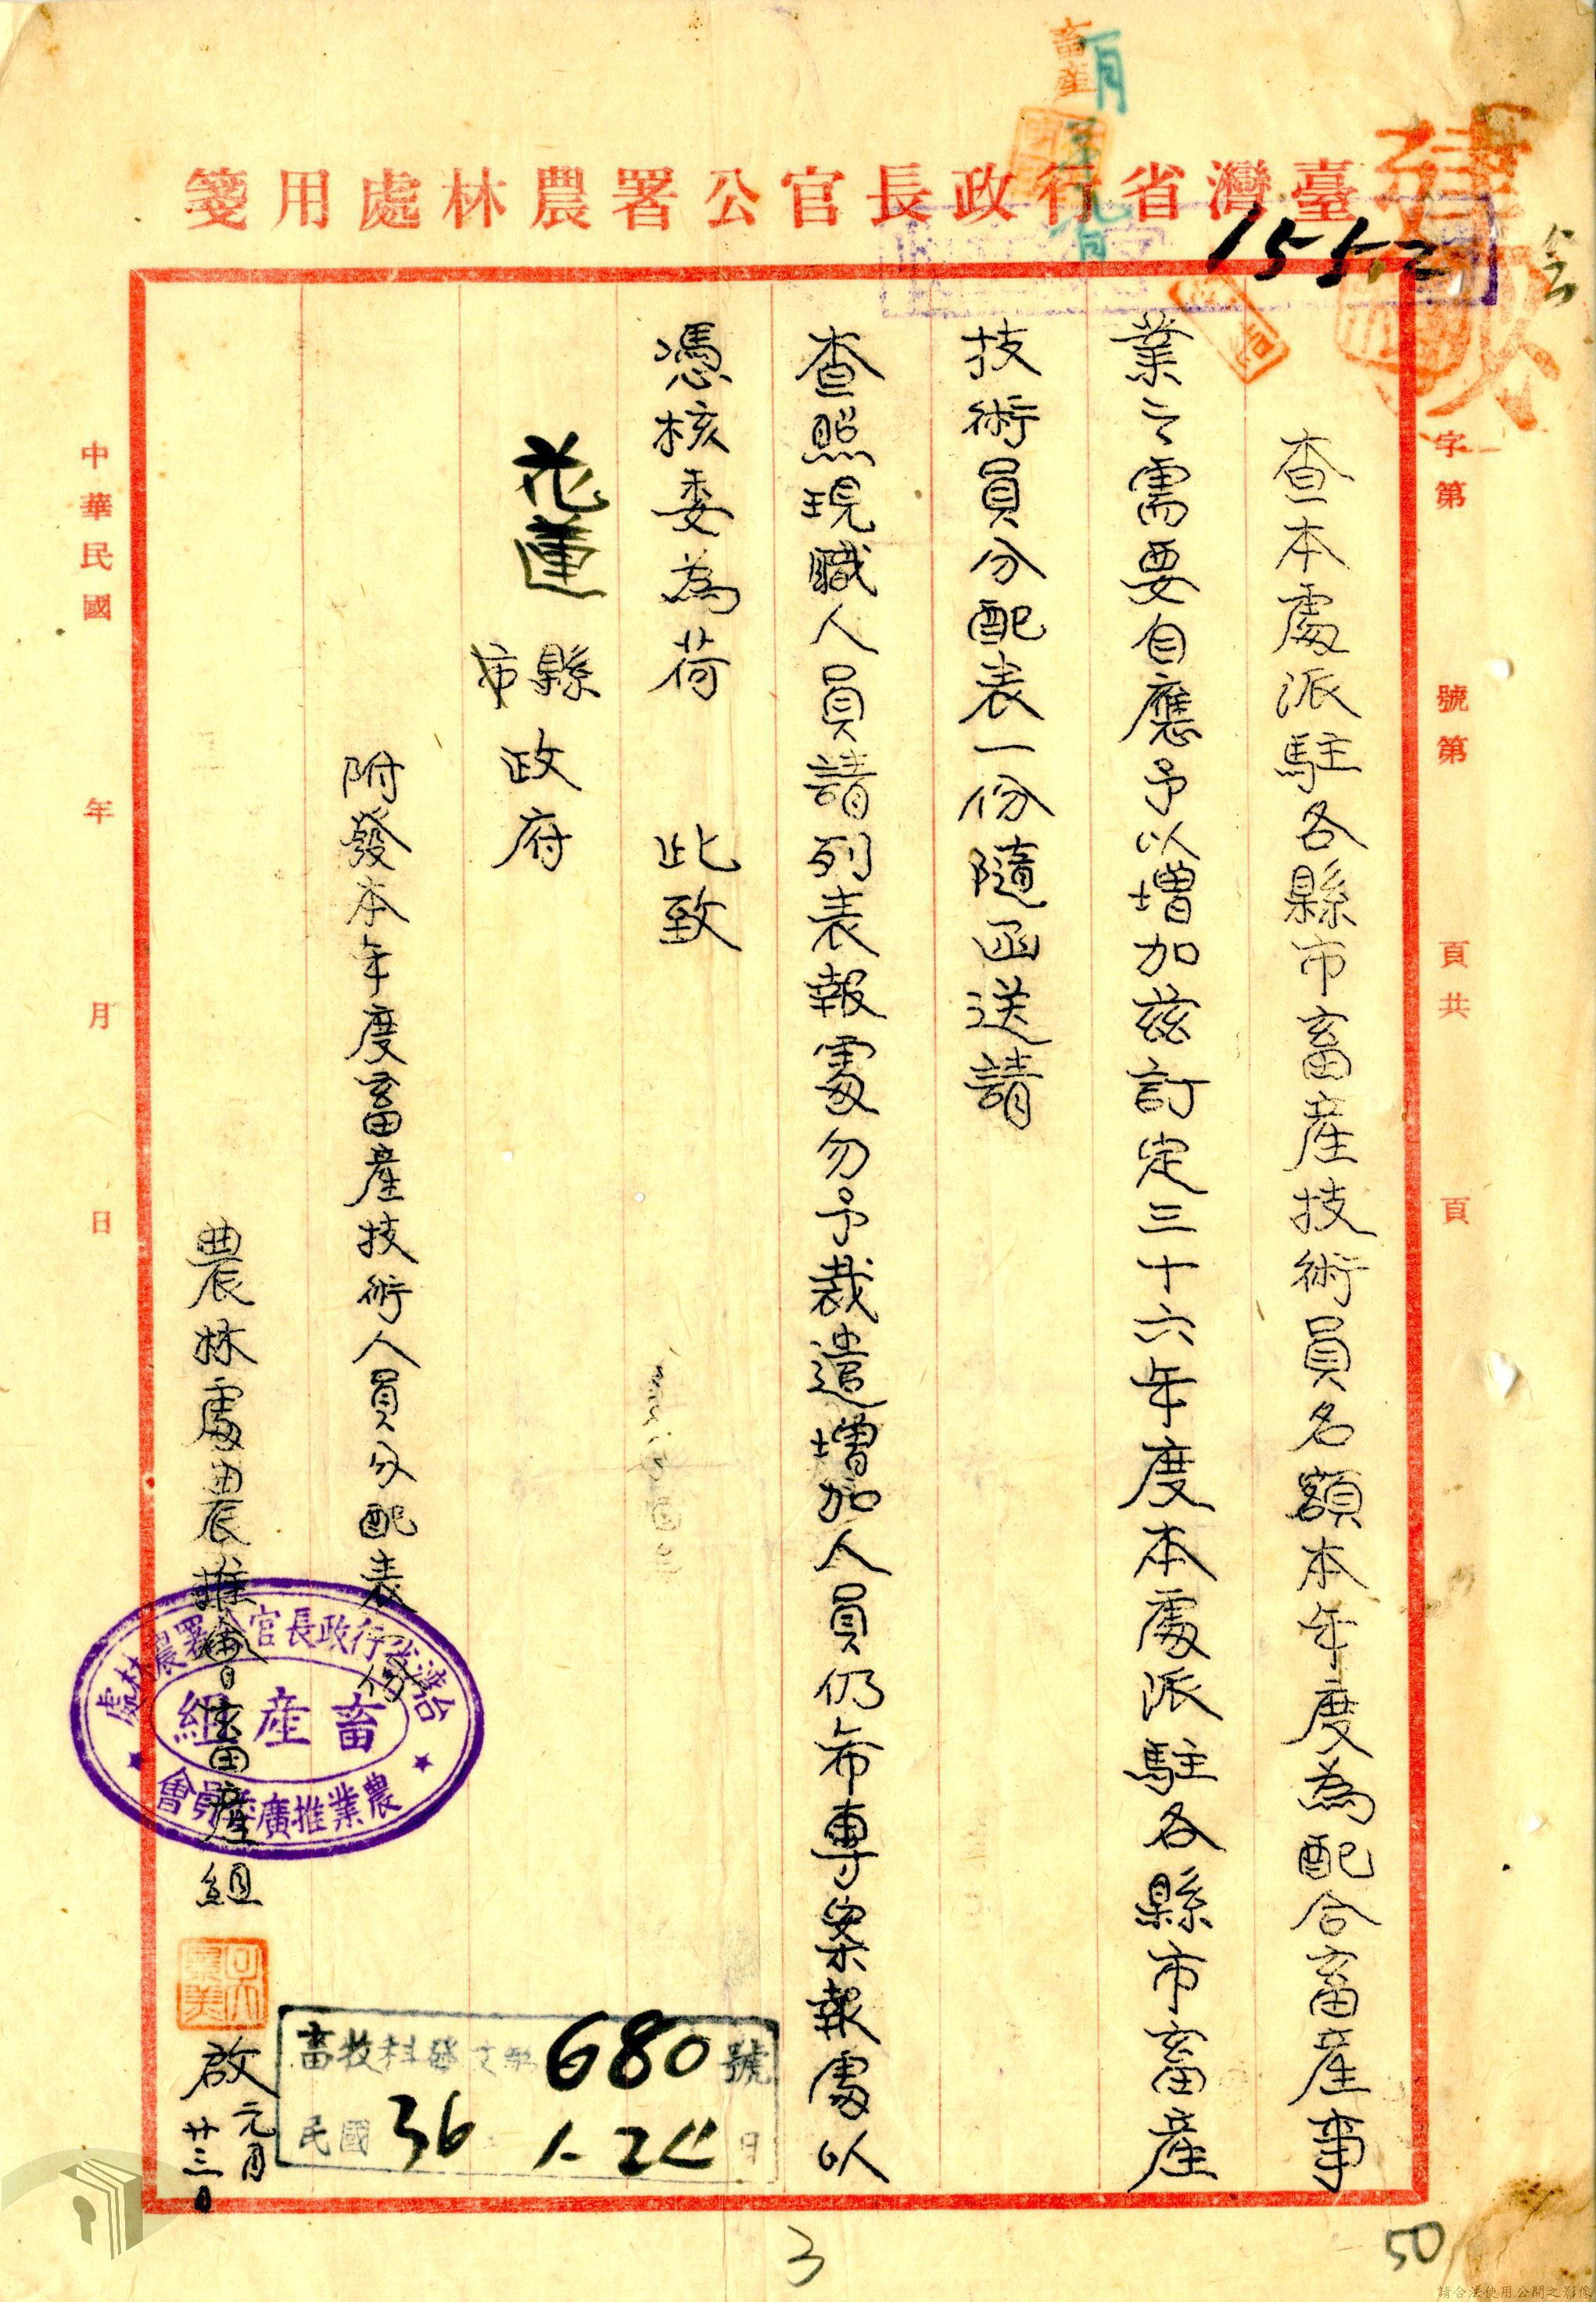 臺灣省行政長官公署農林處用箋
畜產
1552
字第 號第 頁共 頁
查本處派駐各縣市畜產技術員名額本年度為配合畜產事
業之需要自應予以增加茲訂定三十六年度本處派駐各縣市畜產
技術員分配表一份隨函送請
查照現職人員請列表報處勿予裁遣增加人員仍希專案報處以
憑核委為荷 此致
花蓮縣市政府
附發本年度畜產技術人員分配表一份
農林處農推會畜產組 啟 元月廿三日
台灣省行政長官公署農林處
畜產組
農業推廣委員會
畜牧科發文 680 號
民國 36 1-24 日
中華民國 年 月 日
3
50
請合法使用公開之影像